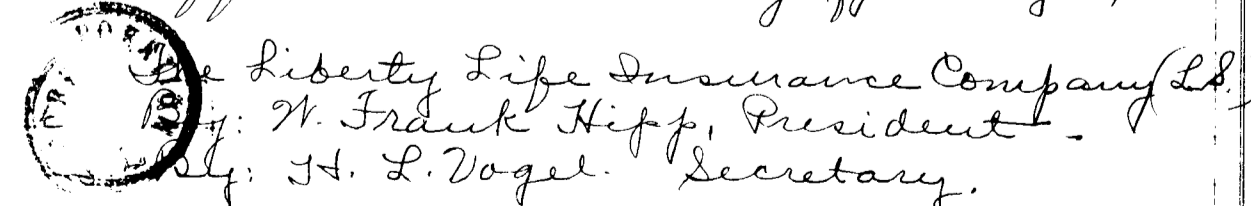 The Liberty Life Insurance Company (L.S.)
By: W. Frank Hipp, President.
By: H. L. Vogel. Secretary.